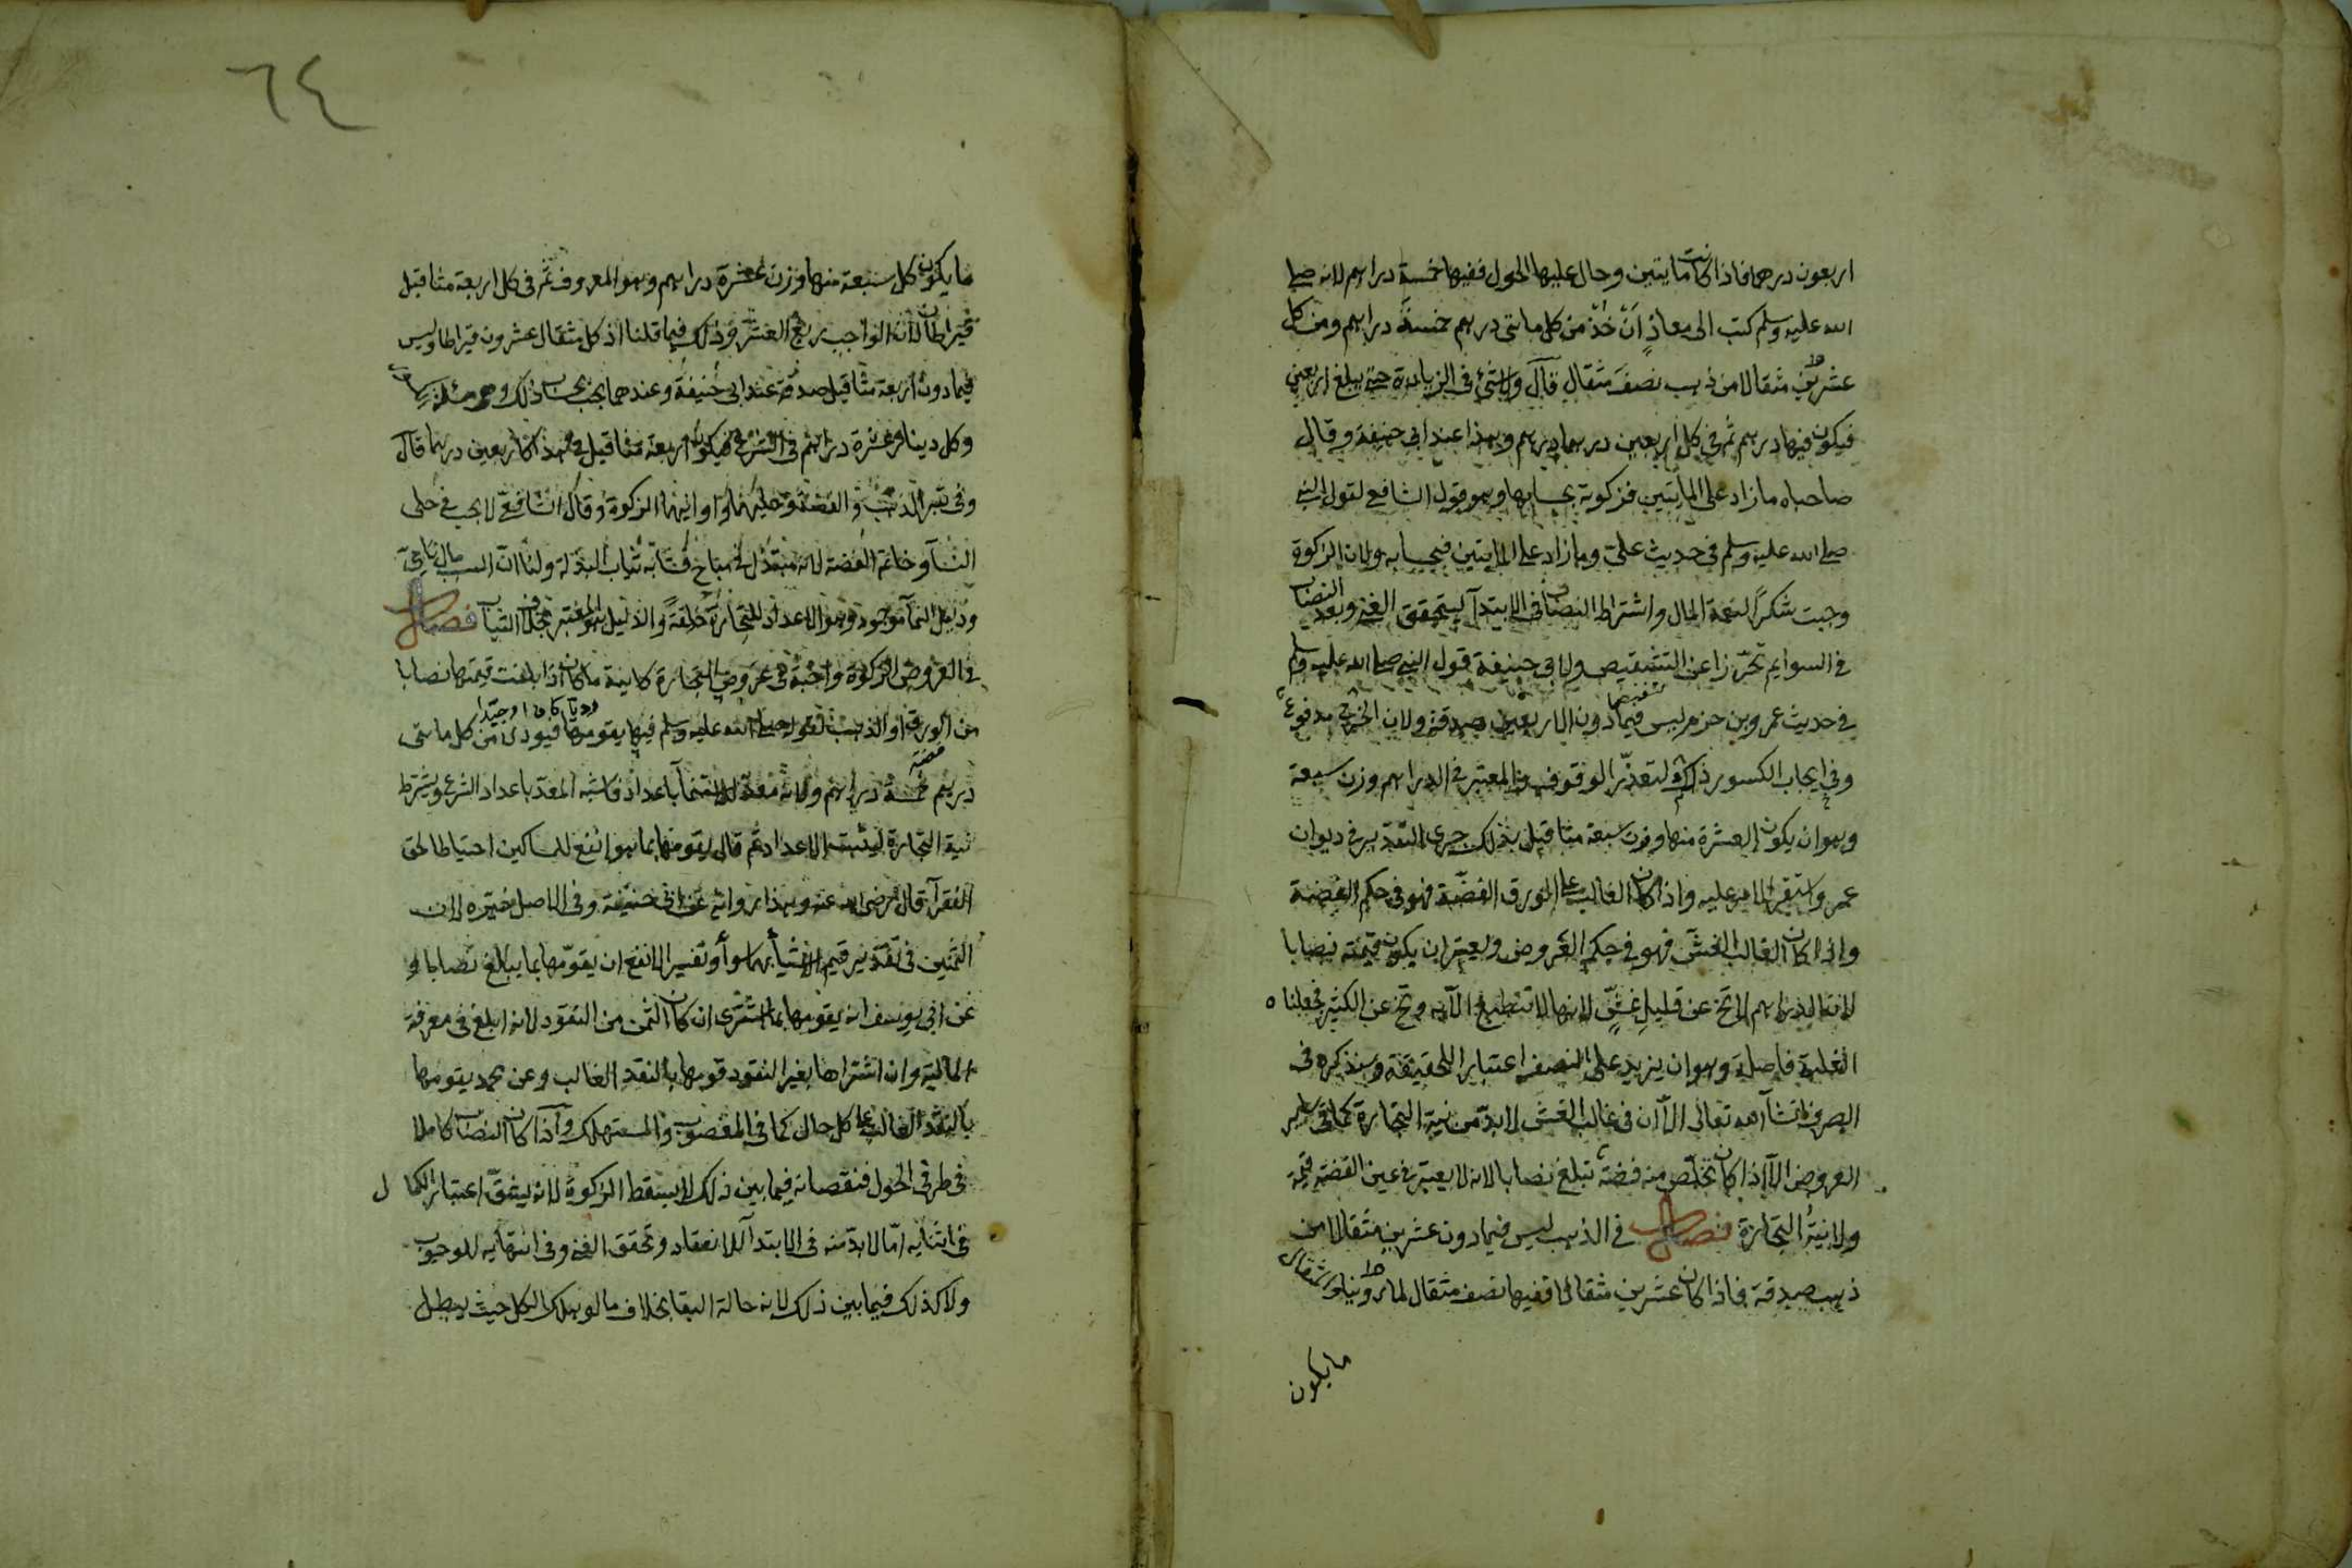 اربعون درهما فاذا كانت مايتين وحال عليها الحول ففيها خمسة دراهم لانه صلى
الله عليه وسلم كتب الى معاذ ان خذ من كل مائتى درهم خمسة دراهم ومن كل
عشرين مثقالا من ذهب نصف مثقال قال ولا شئ فى الزيادة حتى يبلغ اربعين
فيكون فيها درهم ثم فى كل اربعين درهما درهم وهذا عند ابى حنيفة وقال
صاحباه ما زاد على المايتين فزكوته بحسابها وهو قول الشافعى لقول النبى
صلى الله عليه وسلم فى حديث على وما زاد على المايتين فبحسابه ولان الزكوة
وجبت شكرا لنعمة المال واشتراط النصاب فى الابتدآ ليتحقق الغنى وبعد النصاب
فى السوايم تحرزا عن التشقيص ولابى حنيفة قول النبى صلى الله عليه وسلم
فى حديث عمرو بن حزم ليس فيما دون الاربعين صدقة ولان الحرج مدفوع
وفى ايجاب الكسور ذلك لتعذر الوقوف والمعتبر فى الدراهم وزن سبعة
وهو ان يكون العشرة منها وزن سبعة مثاقيل بذلك جرى التقدير فى ديوان
عمر واستقر الامر عليه واذا كان الغالب على الورق الفضة فهو فى حكم الفضة
واذا كان الغالب الغش فهو فى حكم العروض ويعتبر ان يكون قيمته نصابا
لان الدراهم لا تخ عن قليل غش لانها لا تنطبع الا به وتخ عن الكثير فجعلنا
الغلبة فاصلة وهو ان يزيد على النصف اعتبارا للحقيقة وسنذكره فى
الصرف انشآ الله تعالى الا ان فى غالب الغش لا بد من نية التجارة كما فى ساير
العروض الا اذا كان تخلص منه فضة تبلغ نصابا لانه لا يعتبر فى عين الفضة قيمة
ولا نية التجارة فصل فى الذهب ليس فيما دون عشرين مثقالا من
ذهب صدقة فاذا كان عشرين مثقالا ففيها نصف مثقال لما روينا والمثقال
ما يكون
٦٤
ما يكون كل سبعة منها وزن عشرة دراهم وهو المعروف ثم فى كل اربعة مثاقيل
قيراطان لان الواجب ربع العشر وذلك فيما قلنا اذ كل مثقال عشرون قيراطا وليس
فيما دون اربعة مثاقيل صدقة عند ابى حنيفة وعندهما يجب بحساب ذلك وهى مسئلة
وكل دينار عشرة دراهم فى الشرع فيكون اربعة مثاقيل فى هذا كاربعين درهما قال
وفى تبر الذهب والفضة وحليهما واوانيهما الزكوة وقال الشافعى لا يجب فى حلى
النسآ وخاتم الفضة لانه مبتذل فى مباح فشابه ثياب البذلة ولنا ان السبب مال نامى
ودليل النمآ موجود وهو الاعداد للتجارة خلقة والدليل هو المعتبر بخلاف الثياب فصل
فى العروض الزكوة واجبة فى عروض التجارة كاينة ما كانت اذا بلغت قيمتها نصابا
من الورق او الذهب لقوله صلى الله عليه وسلم فيها يقومها فيودى من كل مائتى
درهم خمسة دراهم ولانه معدة للاستنمآ باعداد فاشبه المعد باعداد الشرع ويشترط
نية التجارة ليثبت الاعداد ثم قال يقومها بما هو انفع للمساكين احتياطا لحق
الفقرآ قال رضى الله عنه وهذا رواية عن ابى حنيفة وفى الاصل خيره لان
الثمنين فى تقدير قيم الاشيآ بهما سوآ وتفسير الانفع ان يقومها بما يبلغ نصابا و
عن ابى يوسف انه يقومها بما اشترى ان كان الثمن من النقود لانه ابلغ فى معرفة
المالية وان اشتراها بغير النقود قومها بالنقد الغالب وعن محمد يقومها
بالنقد الغالب على كل حال كما فى المغصوب والمستهلك واذا كان النصاب كاملا
فى طرفى الحول فنقصانه فيما بين ذلك لا يسقط الزكوة لانه يشق اعتبار الكمال
فى اثنايه اما لا بد منه فى الابتدآ للانعقاد وتحقق الغنى وفى انتهايه للوجوب
ولا كذلك فيما بين ذلك لانه حالة البقا بخلاف ما لو هلك الكل حيث يبطل